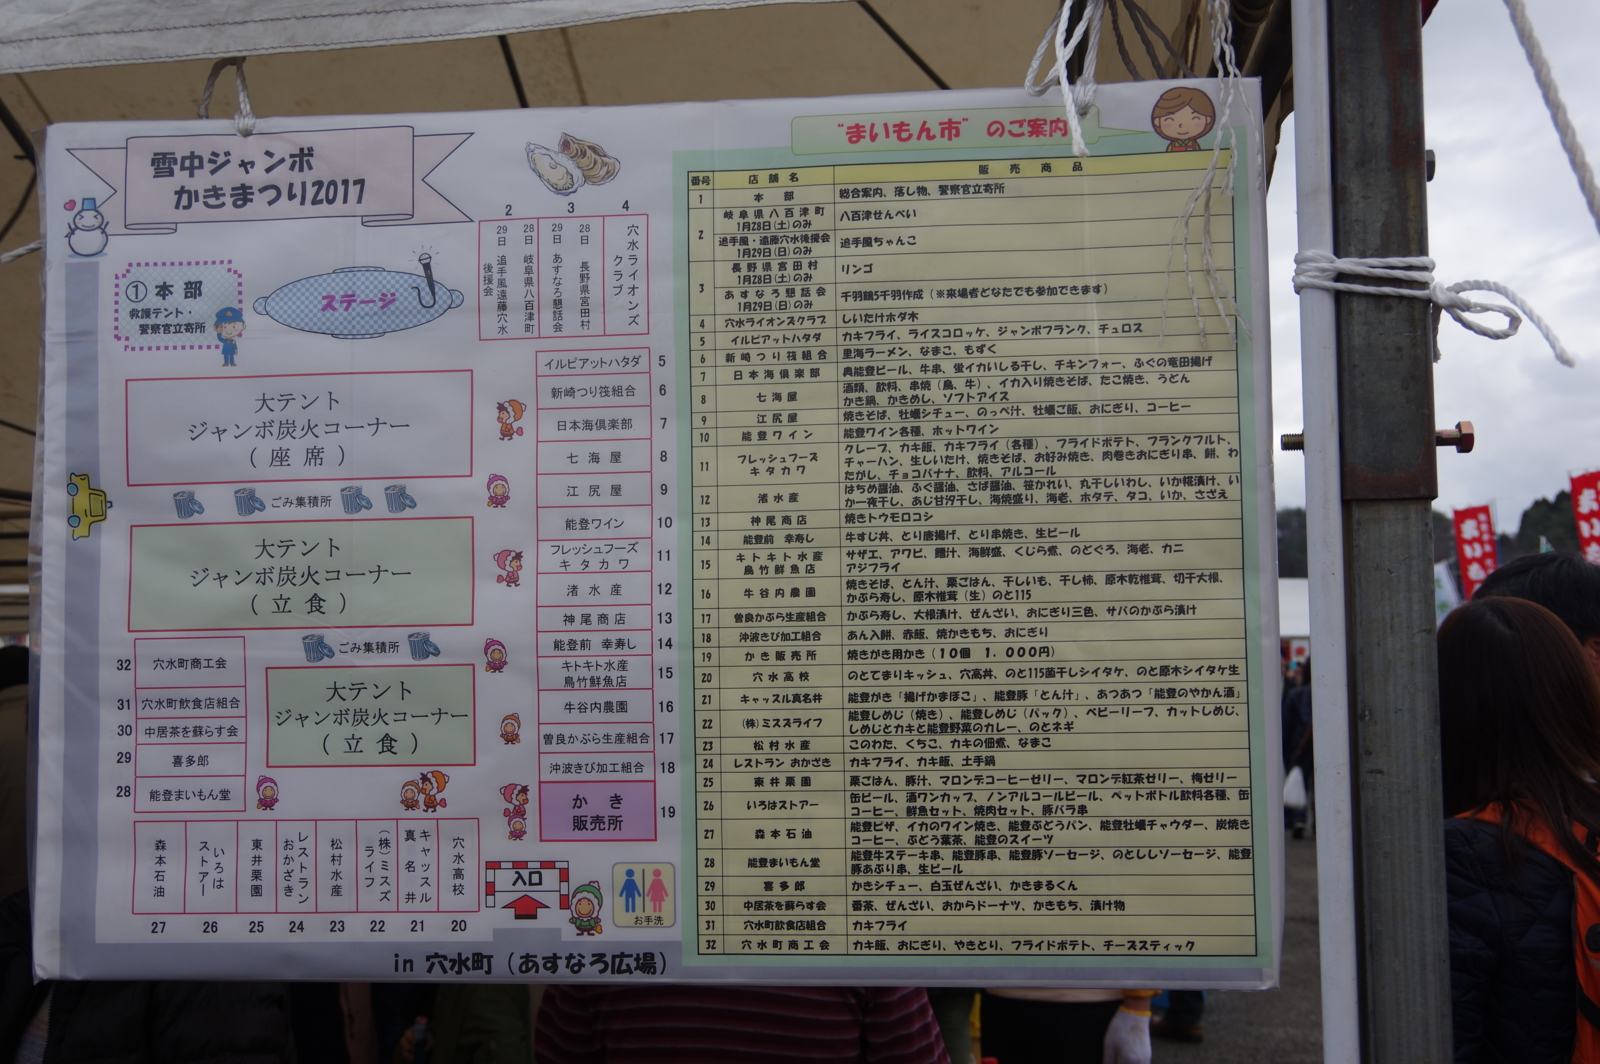 雪中ジャンボ
かきまつり2017
①本部
救護テント・
警察官立寄所
ステージ
2
3
4
29日 追手風遠藤穴水後援会
28日 岐阜県八百津町
29日 あすなろ懇話会
28日 長野県宮田村
穴水ライオンズクラブ
大テント
ジャンボ炭火コーナー
(座席)
ごみ集積所
大テント
ジャンボ炭火コーナー
(立食)
ごみ集積所
大テント
ジャンボ炭火コーナー
(立食)
イルピアットハタダ 5
新崎つり筏組合 6
日本海倶楽部 7
七海屋 8
江尻屋 9
能登ワイン 10
フレッシュフーズ
キタカワ 11
渚水産 12
神尾商店 13
能登前 幸寿し 14
キトキト水産
鳥竹鮮魚店 15
牛谷内農園 16
曽良かぶら生産組合 17
沖波きび加工組合 18
かき
販売所 19
32 穴水町商工会
31 穴水町飲食店組合
30 中居茶を蘇らす会
29 喜多郎
28 能登まいもん堂
森本石油
いろはストアー
東井栗園
レストランおかざき
松村水産
(株)ミスズライフ
キャッスル真名井
穴水高校
27 26 25 24 23 22 21 20
入口
お手洗
in 穴水町(あすなろ広場)
"まいもん市" のご案内
番号 店舗名 販売商品
1 本部 総合案内、落し物、警察官立寄所
2 岐阜県八百津町 1月28日(土)のみ 八百津せんべい
追手風・遠藤穴水後援会 1月29日(日)のみ 追手風ちゃんこ
3 長野県宮田村 1月28日(土)のみ リンゴ
あすなろ懇話会 1月29日(日)のみ 千羽鶴5千羽作成(※来場者どなたでも参加できます)
4 穴水ライオンズクラブ しいたけホダ木
5 イルピアットハタダ カキフライ、ライスコロッケ、ジャンボフランク、チュロス
6 新崎つり筏組合 里海ラーメン、なまこ、もずく
7 日本海倶楽部 奥能登ビール、牛串、蛍イカいしる干し、チキンフォー、ふぐの竜田揚げ
8 七海屋 酒類、飲料、串焼(鳥、牛)、イカ入り焼きそば、たこ焼き、うどん
かき鍋、かきめし、ソフトアイス
9 江尻屋 焼きそば、牡蠣シチュー、のっぺ汁、牡蠣ご飯、おにぎり、コーヒー
10 能登ワイン 能登ワイン各種、ホットワイン
11 フレッシュフーズ キタカワ クレープ、カキ飯、カキフライ(各種)、フライドポテト、フランクフルト、
チャーハン、生しいたけ、焼きそば、お好み焼き、肉巻きおにぎり串、餅、わ
たがし、チョコバナナ、飲料、アルコール
12 渚水産 はちめ醤油、ふぐ醤油、さば醤油、笹かれい、丸干しいわし、いか糀漬け、い
か一夜干し、あじ甘汐干し、海焼盛り、海老、ホタテ、タコ、いか、さざえ
13 神尾商店 焼きトウモロコシ
14 能登前 幸寿し 牛すじ丼、とり唐揚げ、とり串焼き、生ビール
15 キトキト水産 鳥竹鮮魚店 サザエ、アワビ、鱈汁、海鮮盛、くじら煮、のどぐろ、海老、カニ
アジフライ
16 牛谷内農園 焼きそば、とん汁、栗ごはん、干しいも、干し柿、原木乾椎茸、切干大根、
かぶら寿し、原木椎茸(生)のと115
17 曽良かぶら生産組合 かぶら寿し、大根漬け、ぜんざい、おにぎり三色、サバのかぶら漬け
18 沖波きび加工組合 あん入餅、赤飯、焼かきもち、おにぎり
19 かき販売所 焼きがき用かき(10個 1,000円)
20 穴水高校 のとてまりキッシュ、穴高丼、のと115菌干しシイタケ、のと原木シイタケ生
21 キャッスル真名井 能登がき「揚げかまぼこ」、能登豚「とん汁」、あつあつ「能登のやかん酒」
22 (株)ミスズライフ 能登しめじ(焼き)、能登しめじ(パック)、ベビーリーフ、カットしめじ、
しめじとカキと能登野菜のカレー、のとネギ
23 松村水産 このわた、くちこ、カキの佃煮、なまこ
24 レストラン おかざき カキフライ、カキ飯、土手鍋
25 東井栗園 栗ごはん、豚汁、マロンデコーヒーゼリー、マロンデ紅茶ゼリー、梅ゼリー
26 いろはストアー 缶ビール、酒ワンカップ、ノンアルコールビール、ペットボトル飲料各種、缶
コーヒー、鮮魚セット、焼肉セット、豚バラ串
27 森本石油 能登ピザ、イカのワイン焼き、能登ぶどうパン、能登牡蠣チャウダー、炭焼き
コーヒー、ぶどう葉茶、能登のスイーツ
28 能登まいもん堂 能登牛ステーキ串、能登豚串、能登豚ソーセージ、のとししソーセージ、能登
豚あぶり串、生ビール
29 喜多郎 かきシチュー、白玉ぜんざい、かきまるくん
30 中居茶を蘇らす会 番茶、ぜんざい、おからドーナツ、かきもち、漬け物
31 穴水町飲食店組合 カキフライ
32 穴水町商工会 カキ飯、おにぎり、やきとり、フライドポテト、チーズスティック
まいも
まい